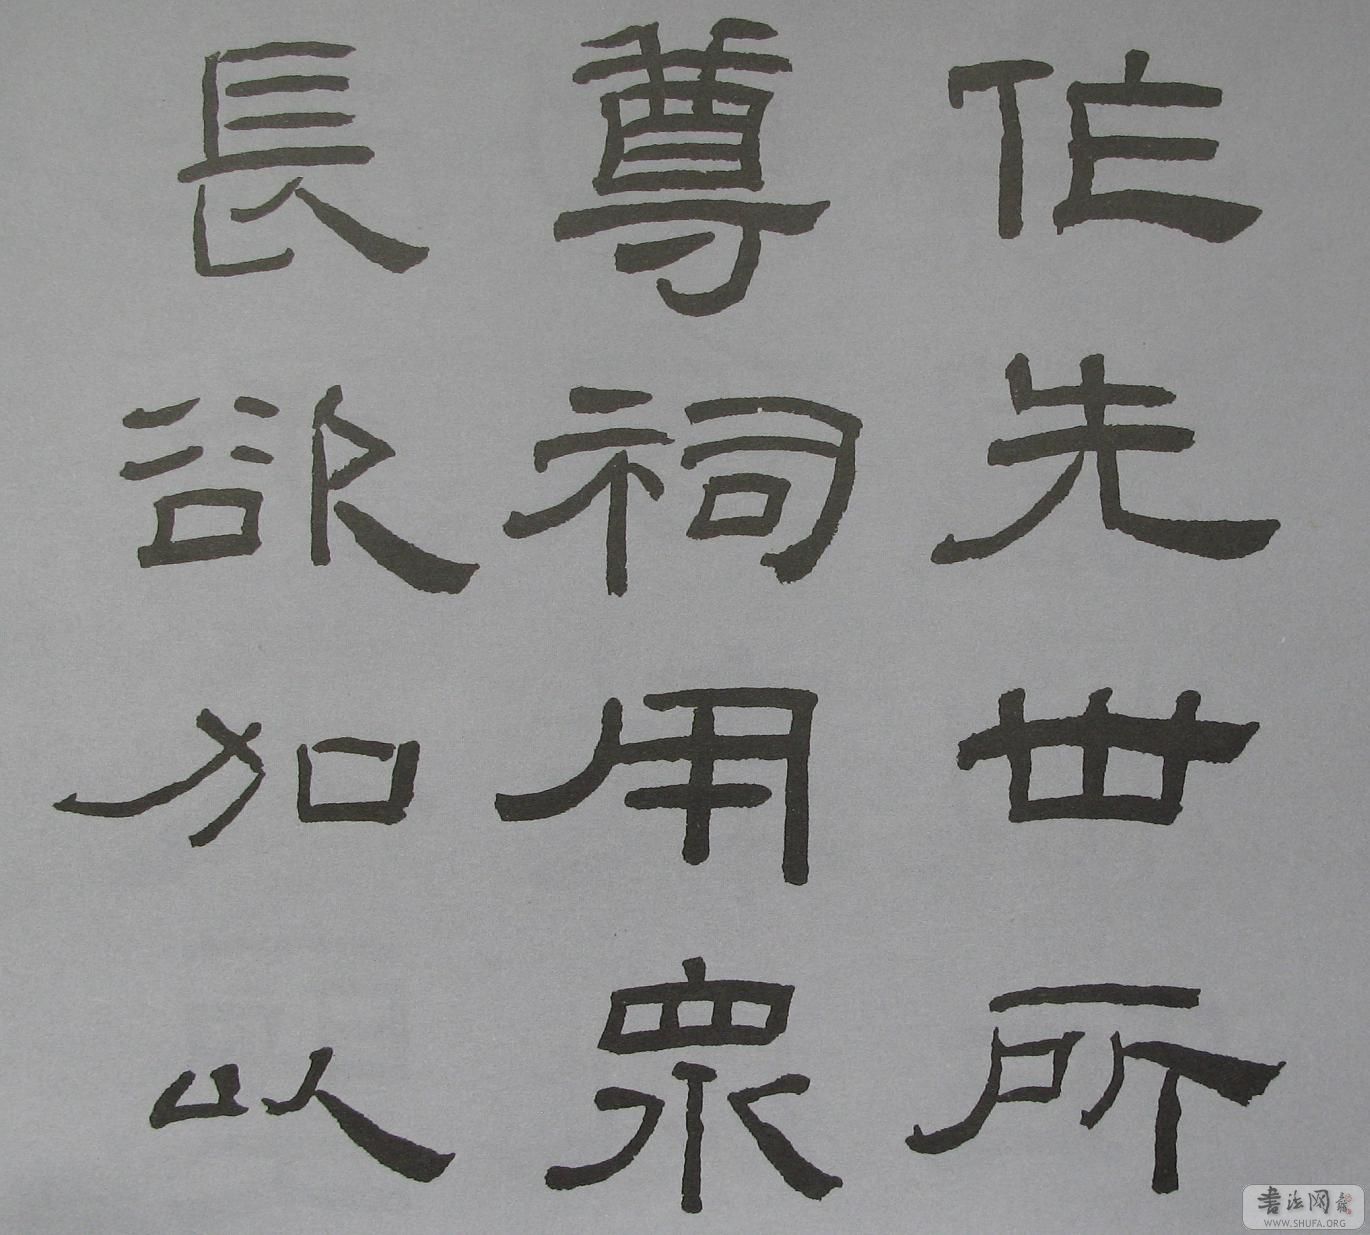 作先世所
尊祠用眾
長欲加以
书法网
WWW.SHUFA.ORG